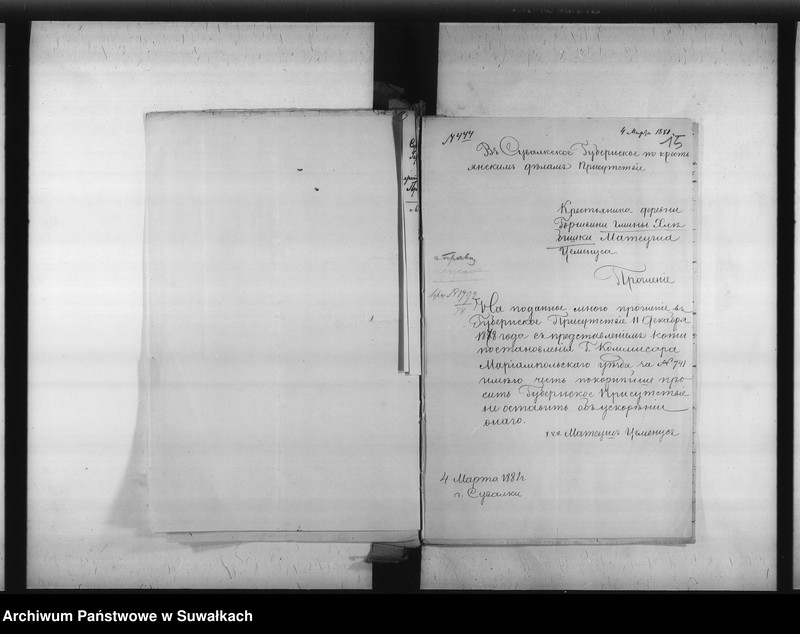 № 444
4 Марта 1881
15
Въ Сувалкское Губернское по кресть
янскимъ дѣламъ Присутствіе
Крестьянина деревни
гмины Хлѣ
бишки Матеуша
Цемнуса
Прошеніе
На поданное мною прошеніе въ
Губернское Присутствіе 11 Декабря
1878 года съ представленіемъ копіи
постановленія Г. Коммисара
Маріампольскаго уѣзда за № 741
имѣю честь покорнѣйше про-
сить Губернское Присутствіе
не оставить объ ускореніи
онаго.
+++ Матеушъ Цемнусъ
4 Марта 1881 г
г. Сувалки
Archiwum Państwowe w Suwałkach